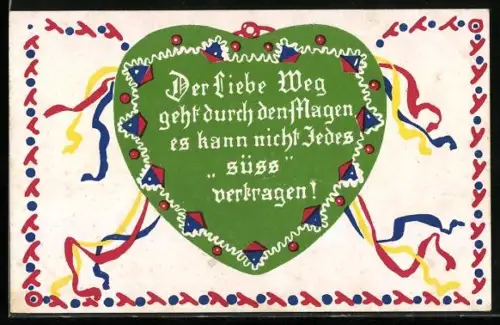 Der Liebe Weg
geht durch den Magen
es kann nicht Jedes
„süss"
vertragen!